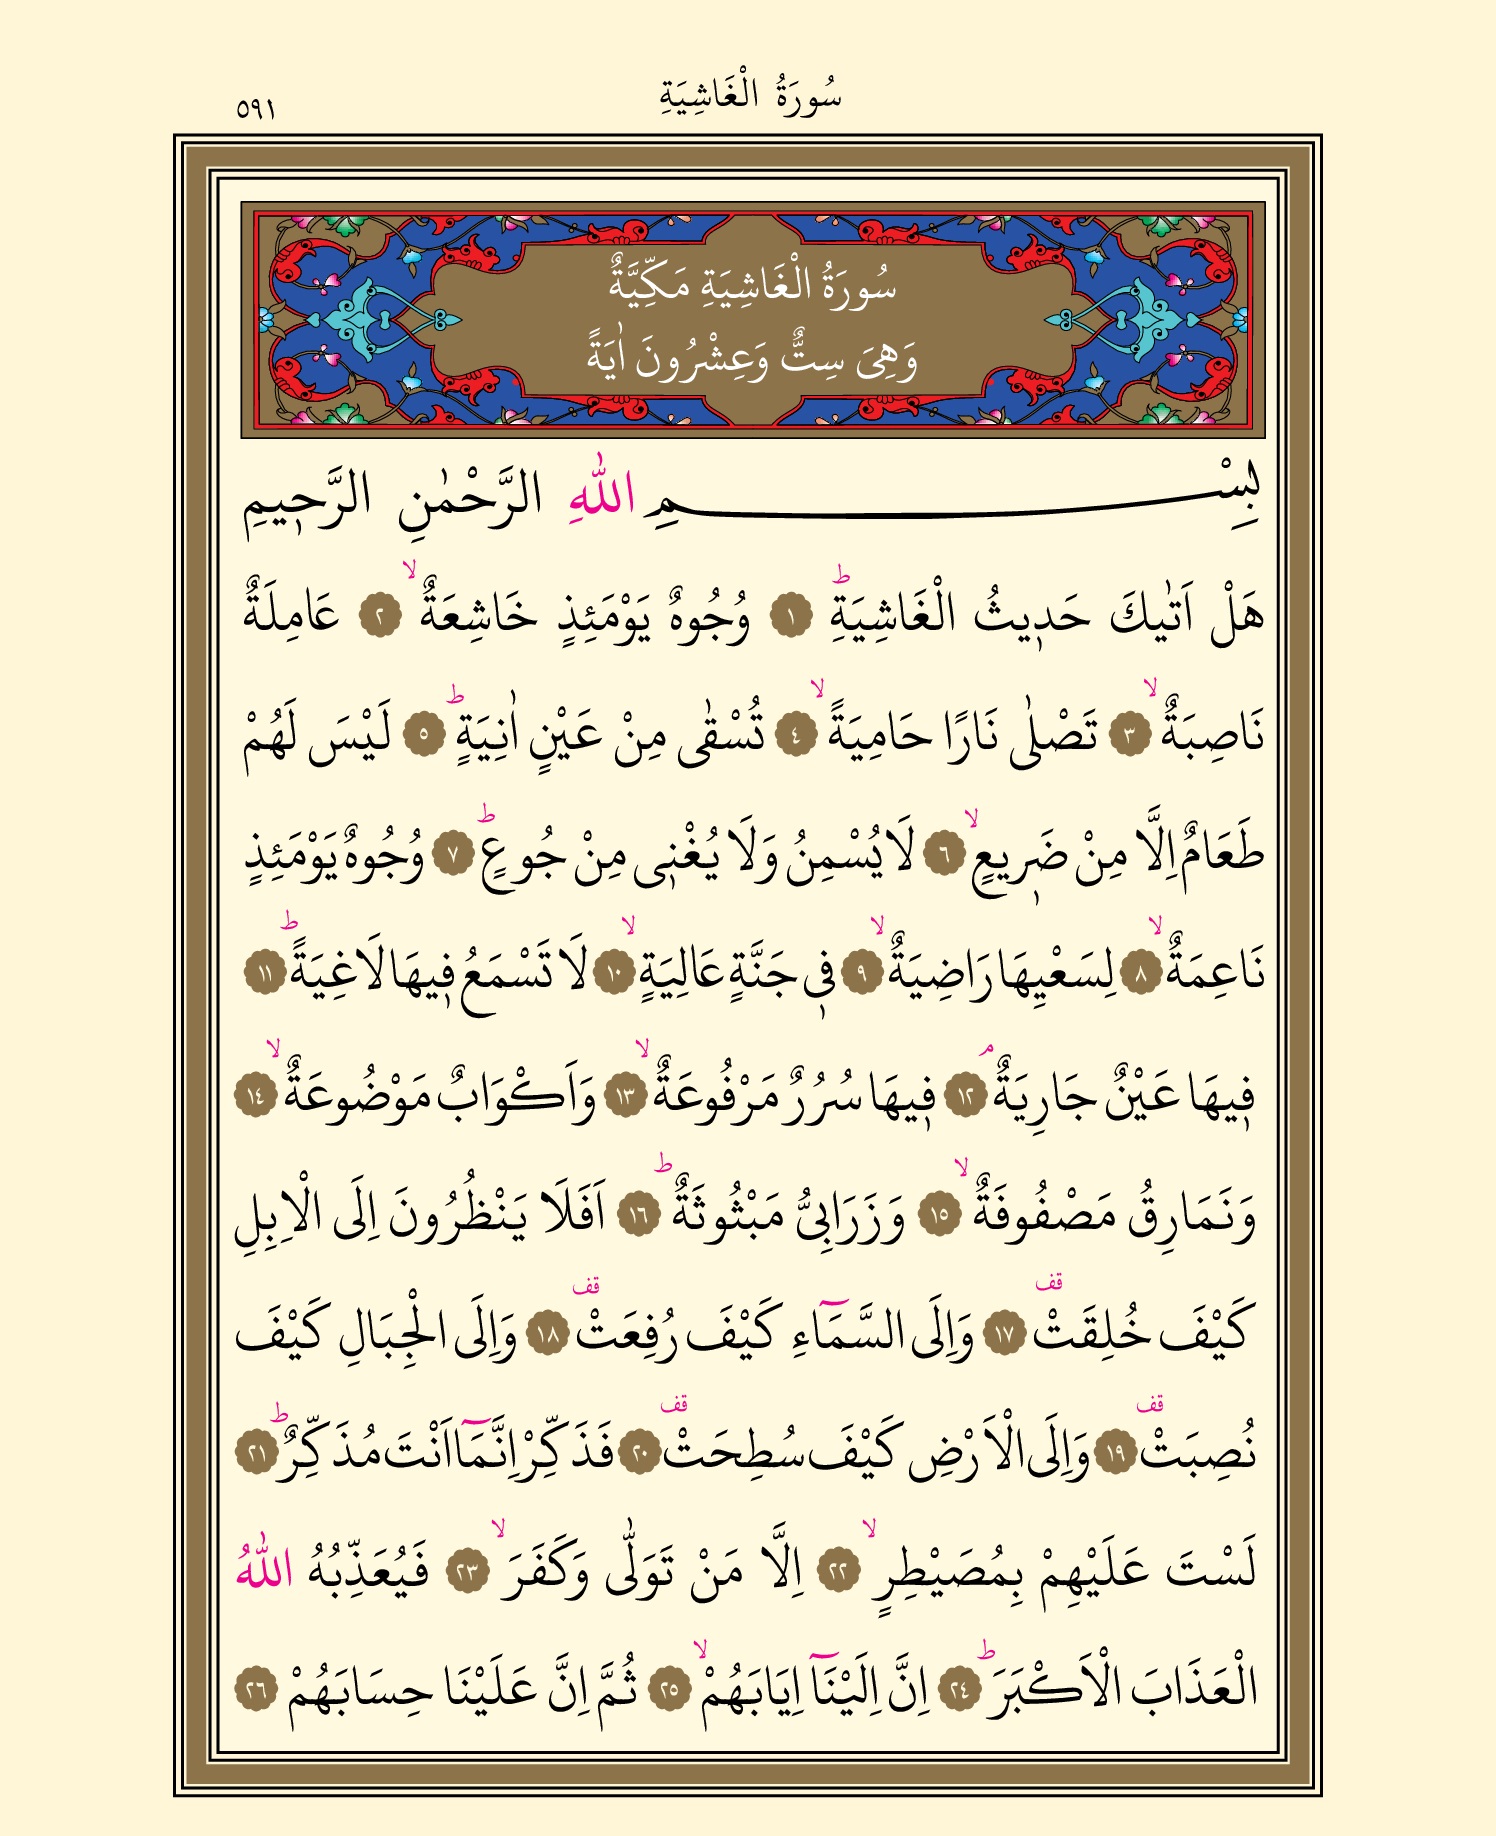 سُورَةُ الْغَاشِيَةِ
٥٩١
سُورَةُ الْغَاشِيَةِ مَكِّيَّةٌ
وَهِىَ سِتٌّ وَعِشْرُونَ اٰيَةً
بِسْمِ اللّٰهِ الرَّحْمٰنِ الرَّح۪يمِ
هَلْ اَتٰيكَ حَد۪يثُ الْغَاشِيَةِۜ ﴿١﴾ وُجُوهٌ يَوْمَئِذٍ خَاشِعَةٌۙ ﴿٢﴾ عَامِلَةٌ
نَاصِبَةٌۙ ﴿٣﴾ تَصْلٰى نَارًا حَامِيَةًۙ ﴿٤﴾ تُسْقٰى مِنْ عَيْنٍ اٰنِيَةٍۜ ﴿٥﴾ لَيْسَ لَهُمْ
طَعَامٌ اِلَّا مِنْ ضَر۪يعٍۙ ﴿٦﴾ لَا يُسْمِنُ وَلَا يُغْن۪ى مِنْ جُوعٍۜ ﴿٧﴾ وُجُوهٌ يَوْمَئِذٍ
نَاعِمَةٌۙ ﴿٨﴾ لِسَعْيِهَا رَاضِيَةٌۙ ﴿٩﴾ ف۪ى جَنَّةٍ عَالِيَةٍۙ ﴿١٠﴾ لَا تَسْمَعُ ف۪يهَا لَاغِيَةًۜ ﴿١١﴾
ف۪يهَا عَيْنٌ جَارِيَةٌۢ ﴿١٢﴾ ف۪يهَا سُرُرٌ مَرْفُوعَةٌۙ ﴿١٣﴾ وَاَكْوَابٌ مَوْضُوعَةٌۙ ﴿١٤﴾
وَنَمَارِقُ مَصْفُوفَةٌۙ ﴿١٥﴾ وَزَرَابِىُّ مَبْثُوثَةٌۜ ﴿١٦﴾ اَفَلَا يَنْظُرُونَ اِلَى الْاِبِلِ
كَيْفَ خُلِقَتْ۠ قف ﴿١٧﴾ وَاِلَى السَّمَٓاءِ كَيْفَ رُفِعَتْ۠ قف ﴿١٨﴾ وَاِلَى الْجِبَالِ كَيْفَ
نُصِبَتْ۠ قف ﴿١٩﴾ وَاِلَى الْاَرْضِ كَيْفَ سُطِحَتْ۠ قف ﴿٢٠﴾ فَذَكِّرْ اِنَّمَٓا اَنْتَ مُذَكِّرٌۜ ﴿٢١﴾
لَسْتَ عَلَيْهِمْ بِمُصَيْطِرٍۙ ﴿٢٢﴾ اِلَّا مَنْ تَوَلّٰى وَكَفَرَۙ ﴿٢٣﴾ فَيُعَذِّبُهُ اللّٰهُ
الْعَذَابَ الْاَكْبَرَۜ ﴿٢٤﴾ اِنَّ اِلَيْنَٓا اِيَابَهُمْۙ ﴿٢٥﴾ ثُمَّ اِنَّ عَلَيْنَا حِسَابَهُمْ ﴿٢٦﴾